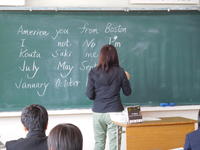 America you from Boston
I not No I'm
Kouta Saki me
July May Sept
January October